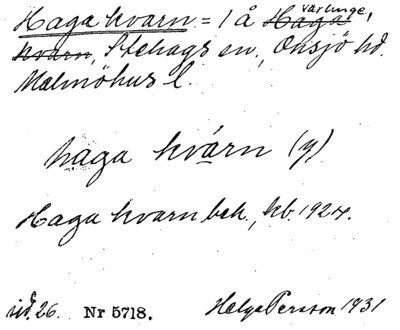 Haga kvarn = 1 å Haga varlunge,
kvarn, Stehags sn., Onsjö hd.
Malmöhus l.
haga kvárn (y)
Haga kvarn beb., kb. 1924.
sid. 26. Nr 5718. Helga Persson 1931